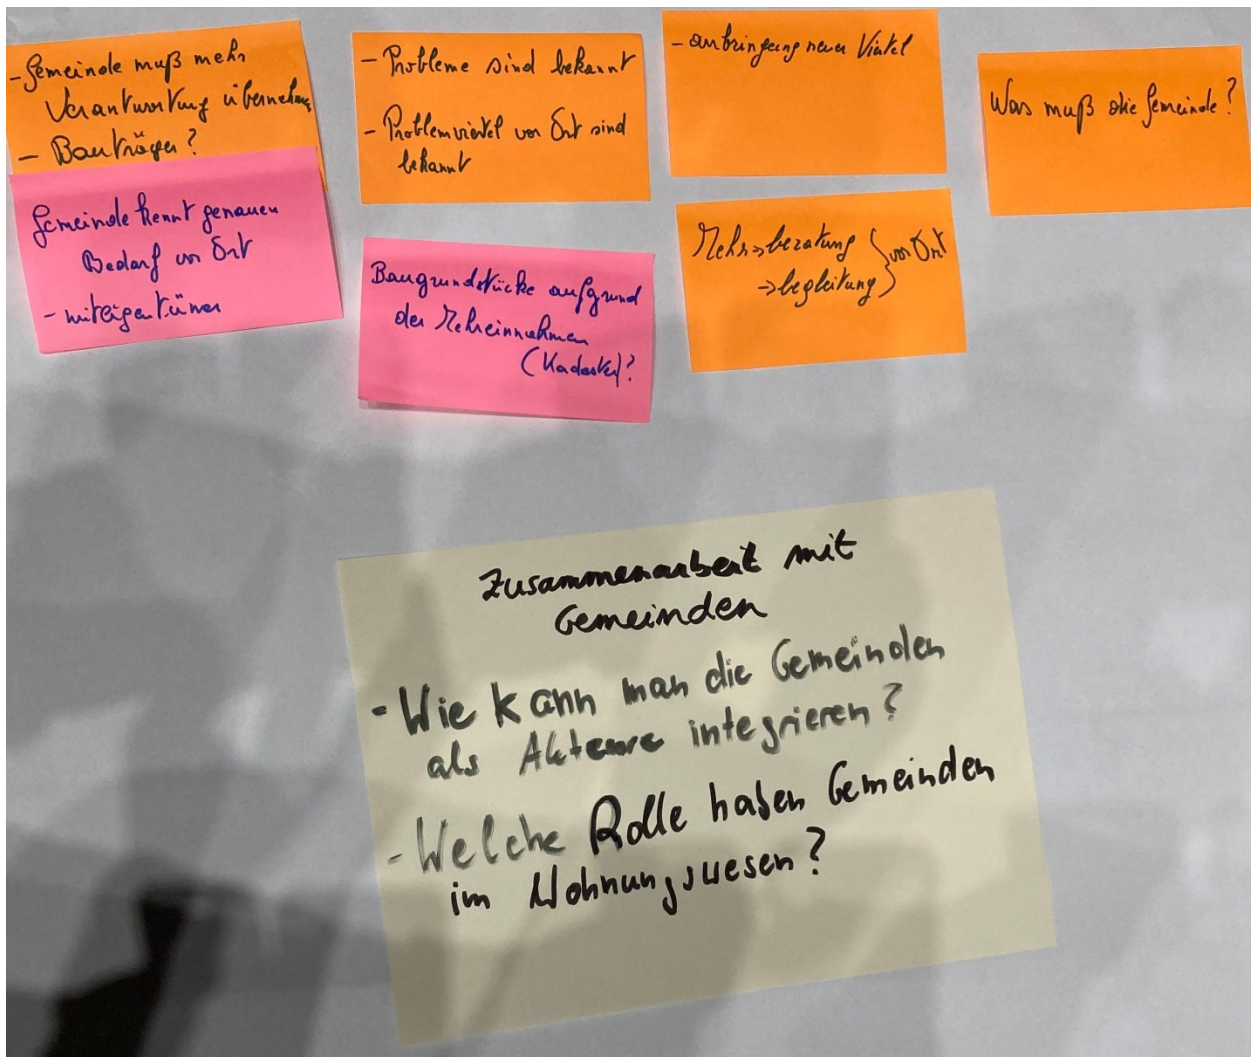 - Gemeinde muß mehr
Verantwortung übernehmen
- Bauträger?
Gemeinde kennt genauen
Bedarf vor Ort
- miteigentümer
- Probleme sind bekannt
- Problemviertel vor Ort sind
bekannt
Baugrundstücke aufgrund
der Mehreinnahmen
(Kadaster)?
- anbringung neuer Viertel
Mehr → beratung
→ begleitung } vor Ort
Was muß die Gemeinde?
Zusammenarbeit mit
Gemeinden
- Wie kann man die Gemeinden
als Akteure integrieren?
- Welche Rolle haben Gemeinden
im Wohnungswesen?